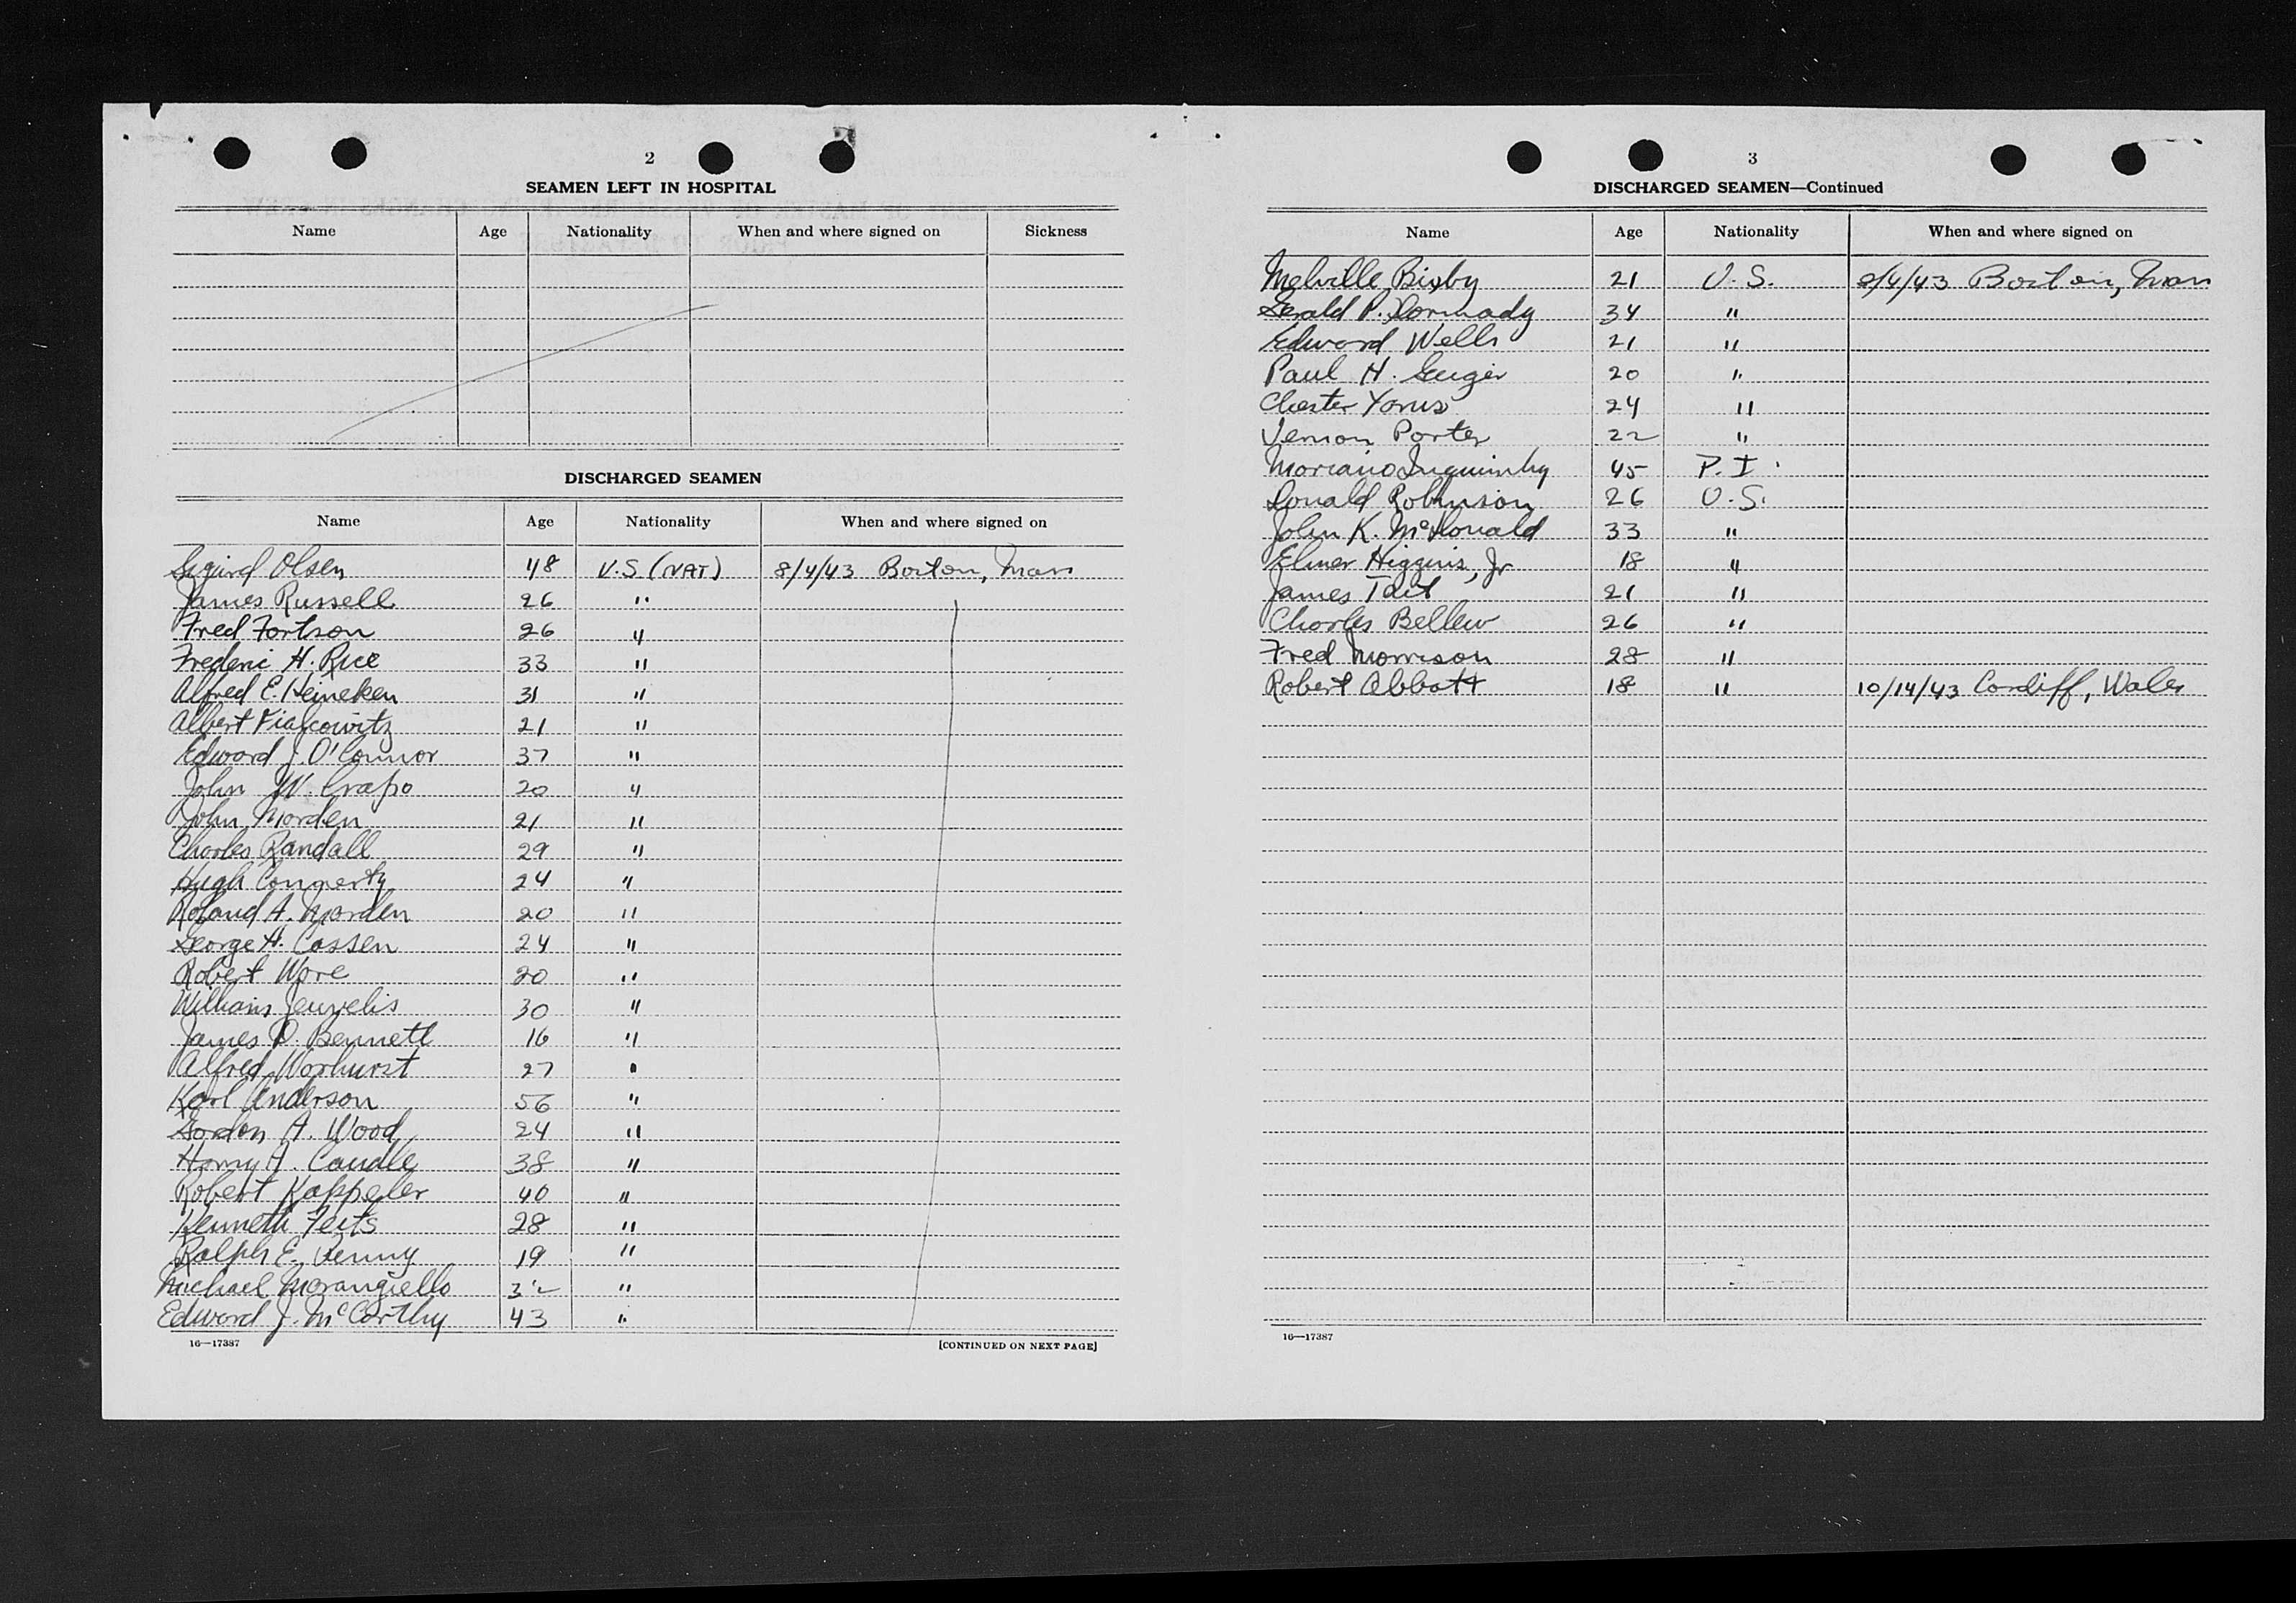 2
SEAMEN LEFT IN HOSPITAL
Name Age Nationality When and where signed on Sickness
DISCHARGED SEAMEN
Name Age Nationality When and where signed on
Sigurd Olsen 48 U.S. (NAT) 8/4/43 Boston, Mass
James Russell 26 "
Fred Fortson 26 "
Frederic H. Rice 33 "
Alfred E. Heineken 31 "
Albert Fialcowitz 21 "
Edward J. O'Connor 37 "
John W. Crapo 20 "
John Norden 21 "
Charles Randall 29 "
Hugh Connerty 24 "
Roland A. Norden 20 "
George H. Cassen 24 "
Robert Ware 20 "
William 30 "
James D. Bennett 16 "
Alfred Warhurst 27 "
Karl Anderson 56 "
Gordon A. Wood 24 "
Harry A. Caudle 38 "
Robert Kappeler 40 "
Kenneth Feits 28 "
Ralph E. Penny 19 "
Michael Morangiello 32 "
Edward J. McCarthy 43 "
16—17387 [CONTINUED ON NEXT PAGE]
3
DISCHARGED SEAMEN—Continued
Name Age Nationality When and where signed on
Melville Bixby 21 U.S. 8/4/43 Boston, Mass
Gerald P. Dormady 34 "
Edward Wells 21 "
Paul H. Geiger 20 "
Chester Yorus 24 "
Vernon Porter 22 "
Mariano 45 P.I.
Donald Robinson 26 U.S.
John K. McDonald 33 "
Elmer Higgins, Jr 18 "
James Tait 21 "
Charles Bellew 26 "
Fred Morrison 28 "
Robert Abbott 18 " 10/14/43 Cardiff, Wales
16—17387